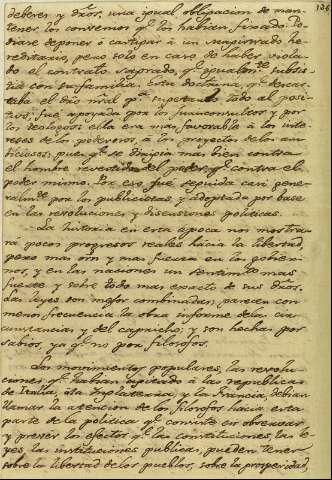 126
deberes y dros, una igual obligacion de man-
tener los convenios qe. los habian fixado. Po-
diase deponer ó castigar á un magistrado he-
reditario, pero solo en caso de haber viola-
do el contrato sagrado, qe. igualmte. subsis-
tia con su familia. Esta doctrina, qe. descar-
taba el dro nral qe. sugetando todo al posi-
tivo, fue apoyada por los jurisconsultos y por
los teologos: ella era mas favorable á los inte-
reses de los poderosos, á los proyectos de los am-
biciosos, pues qe. se dirigia mas bien contra
el hombre revestido del poder, qe. contra el
poder mismo. Por eso fue seguida casi gene-
ralmte. por los publicistas, y adoptada por base
en las revoluciones y disensiones politicas.
La historia en esta epoca nos mostra-
ra pocos progresos reales hacia la libertad,
pero mas orn y mas fuerza en los gobier-
nos, y en las naciones un sentimto. mas
fuerte y sobre todo mas exacto de sus dros.
Las leyes son mejor combinadas, parecen con
menos frecuencia la obra informe de las cir-
cunstancias y del capricho; y son hechas por
sabios, ya qe. no por filosofos.
Los movimientos populares, las revolu-
ciones qe. habian agitado á las republicas
de Italia, á la Inglaterra y la Francia, debian
llamar la atencion de los filosofos hacia esta
parte de la politica qe. consiste en observar
y prever los efectos qe. las constituciones, las le-
yes, las instituciones publicas, pueden tener
sobre la libertad de los pueblos, sobre la prosperidad,